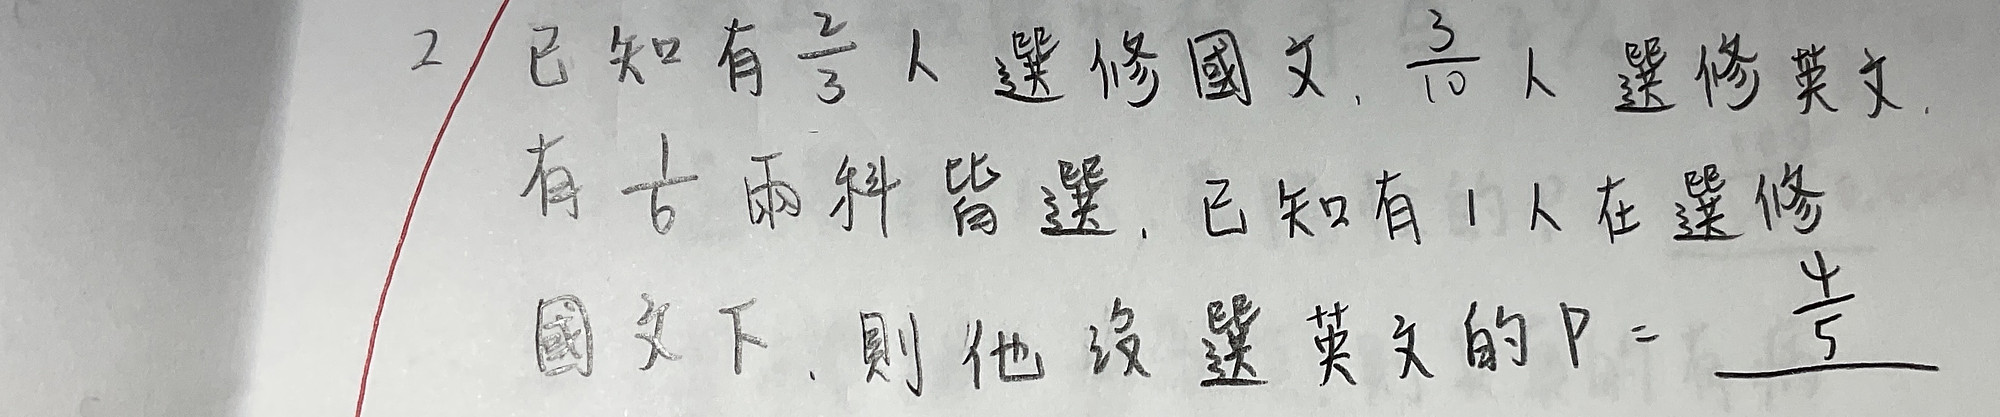 2 已知有2/3人選修國文,3/10人選修英文,
有1/6兩科皆選,已知有1人在選修
國文下,則他沒選英文的P=4/5